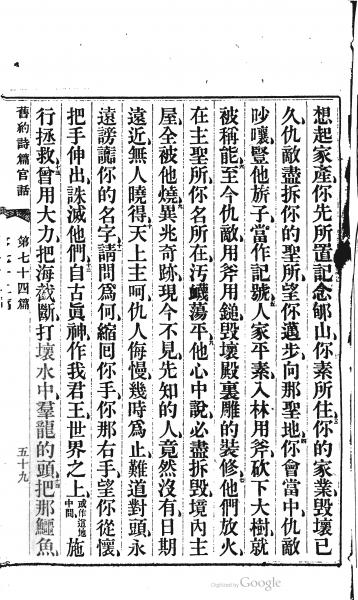 想起家產你先所置記念郇山你素所住你的家業毀壞已
久仇敵盡拆你的聖所望你邁步向那聖地你會當中仇敵
吵嚷豎他旂子當作記號人家平素入林用斧砍下大樹就
被稱能至今仇敵用斧用鎚毀壞殿裏雕的裝修他們放火
在主聖所你名所在汚衊蕩平他心中說必盡拆毀境內主
屋全被他燒異兆奇跡現今不見先知的人竟然沒有日期
遠近無人曉得天上主呵仇人侮慢幾時爲止難道對頭永
遠謗讟你的名字請問爲何縮囘你手你那右手望你從懷
把手伸出誅滅他們自古眞神作我君王世界之上或作這地中間施
行拯救曾用大力把海截斷打壞水中羣龍的頭把那鱷魚
舊約詩篇官話
第七十四篇
五十九
Digitized by Google